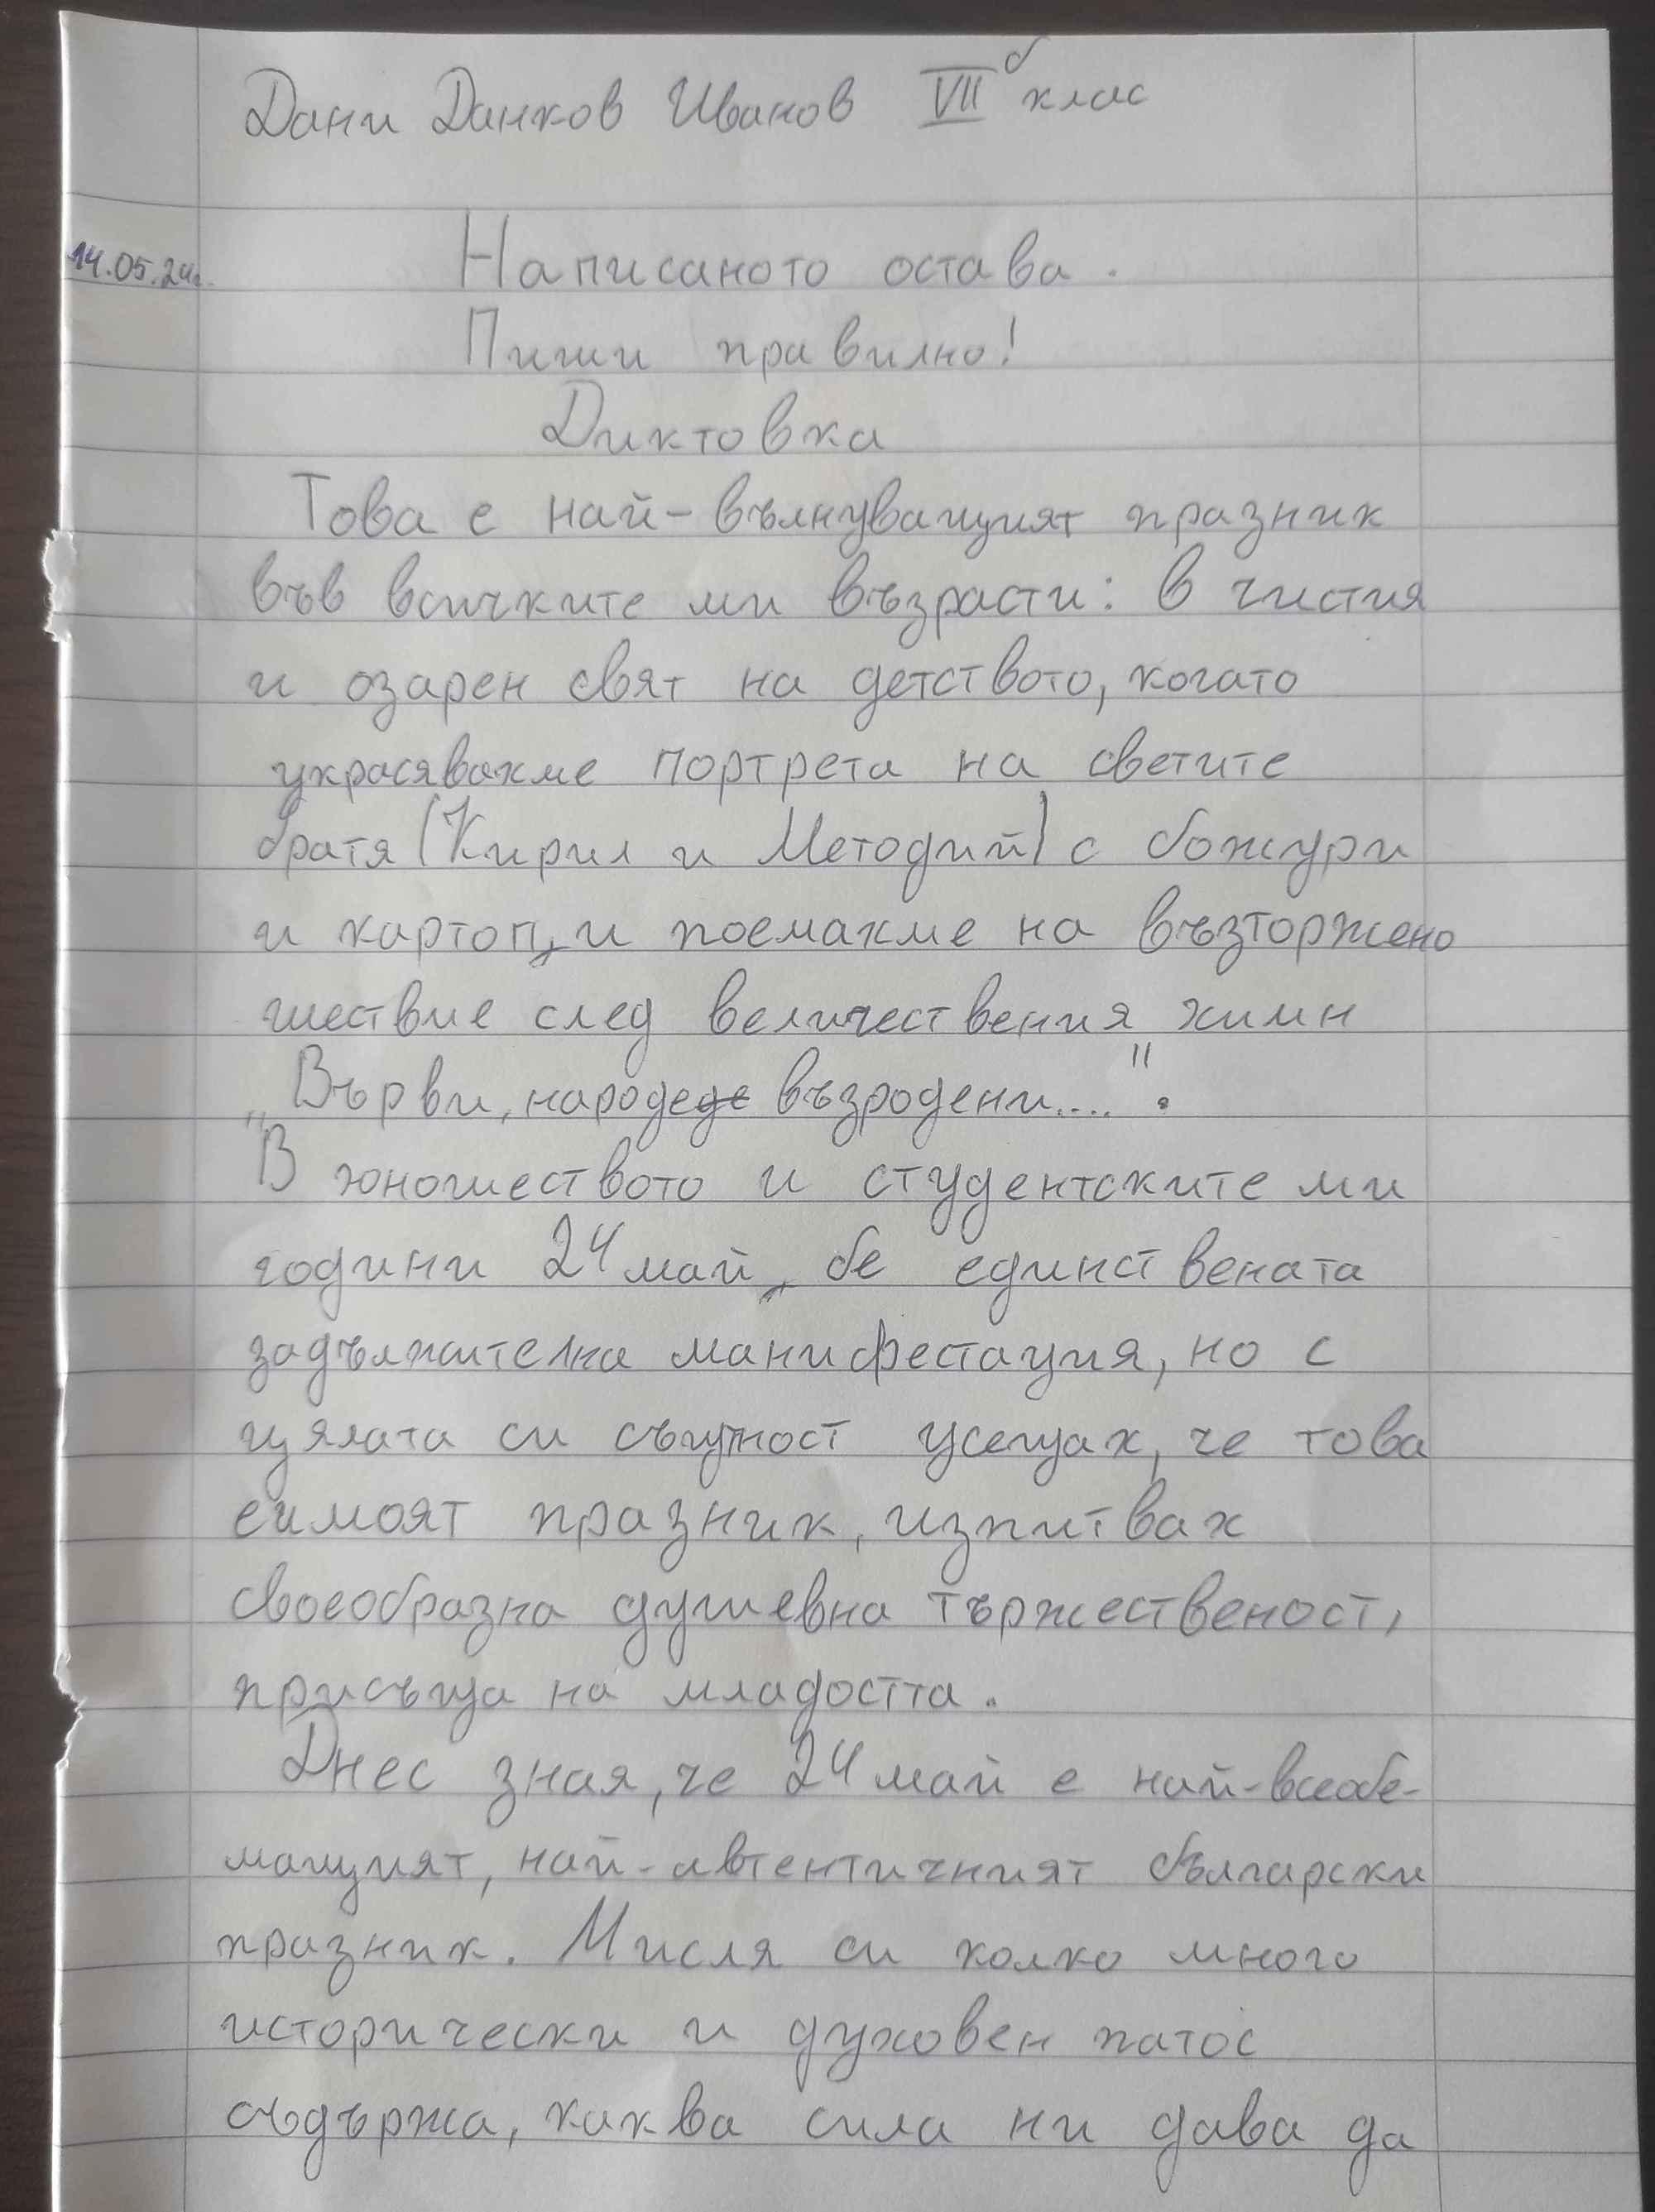 Дани Данков Иванов VII б клас
14.05.24г.
Написаното остава.
Пиши правилно!
Диктовка
Това е най-вълнуващият празник
във всичките ми възрасти: в чистия
и озарен свят на детството, когато
украсявахме портрета на светите
братя (Кирил и Методий) с божури
и картоп, и поемахме на възторжено
шествие след величествения химн
„Върви, народе възродени....".
В юношеството и студентските ми
години 24 май бе единствената
задължителна манифестация, но с
цялата си същност усещах, че това
е и моят празник, изпитвах
своеобразна душевна тържественост,
присъща на младостта.
Днес зная, че 24 май е най-всеобе-
мащият, най-автентичният български
празник. Мисля си колко много
исторически и духовен патос
съдържа, каква сила ни дава да